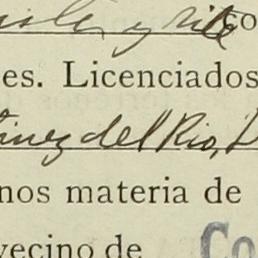 y co
es. Licenciados
tinez del Rio, D
nos materia de
vecino de Co